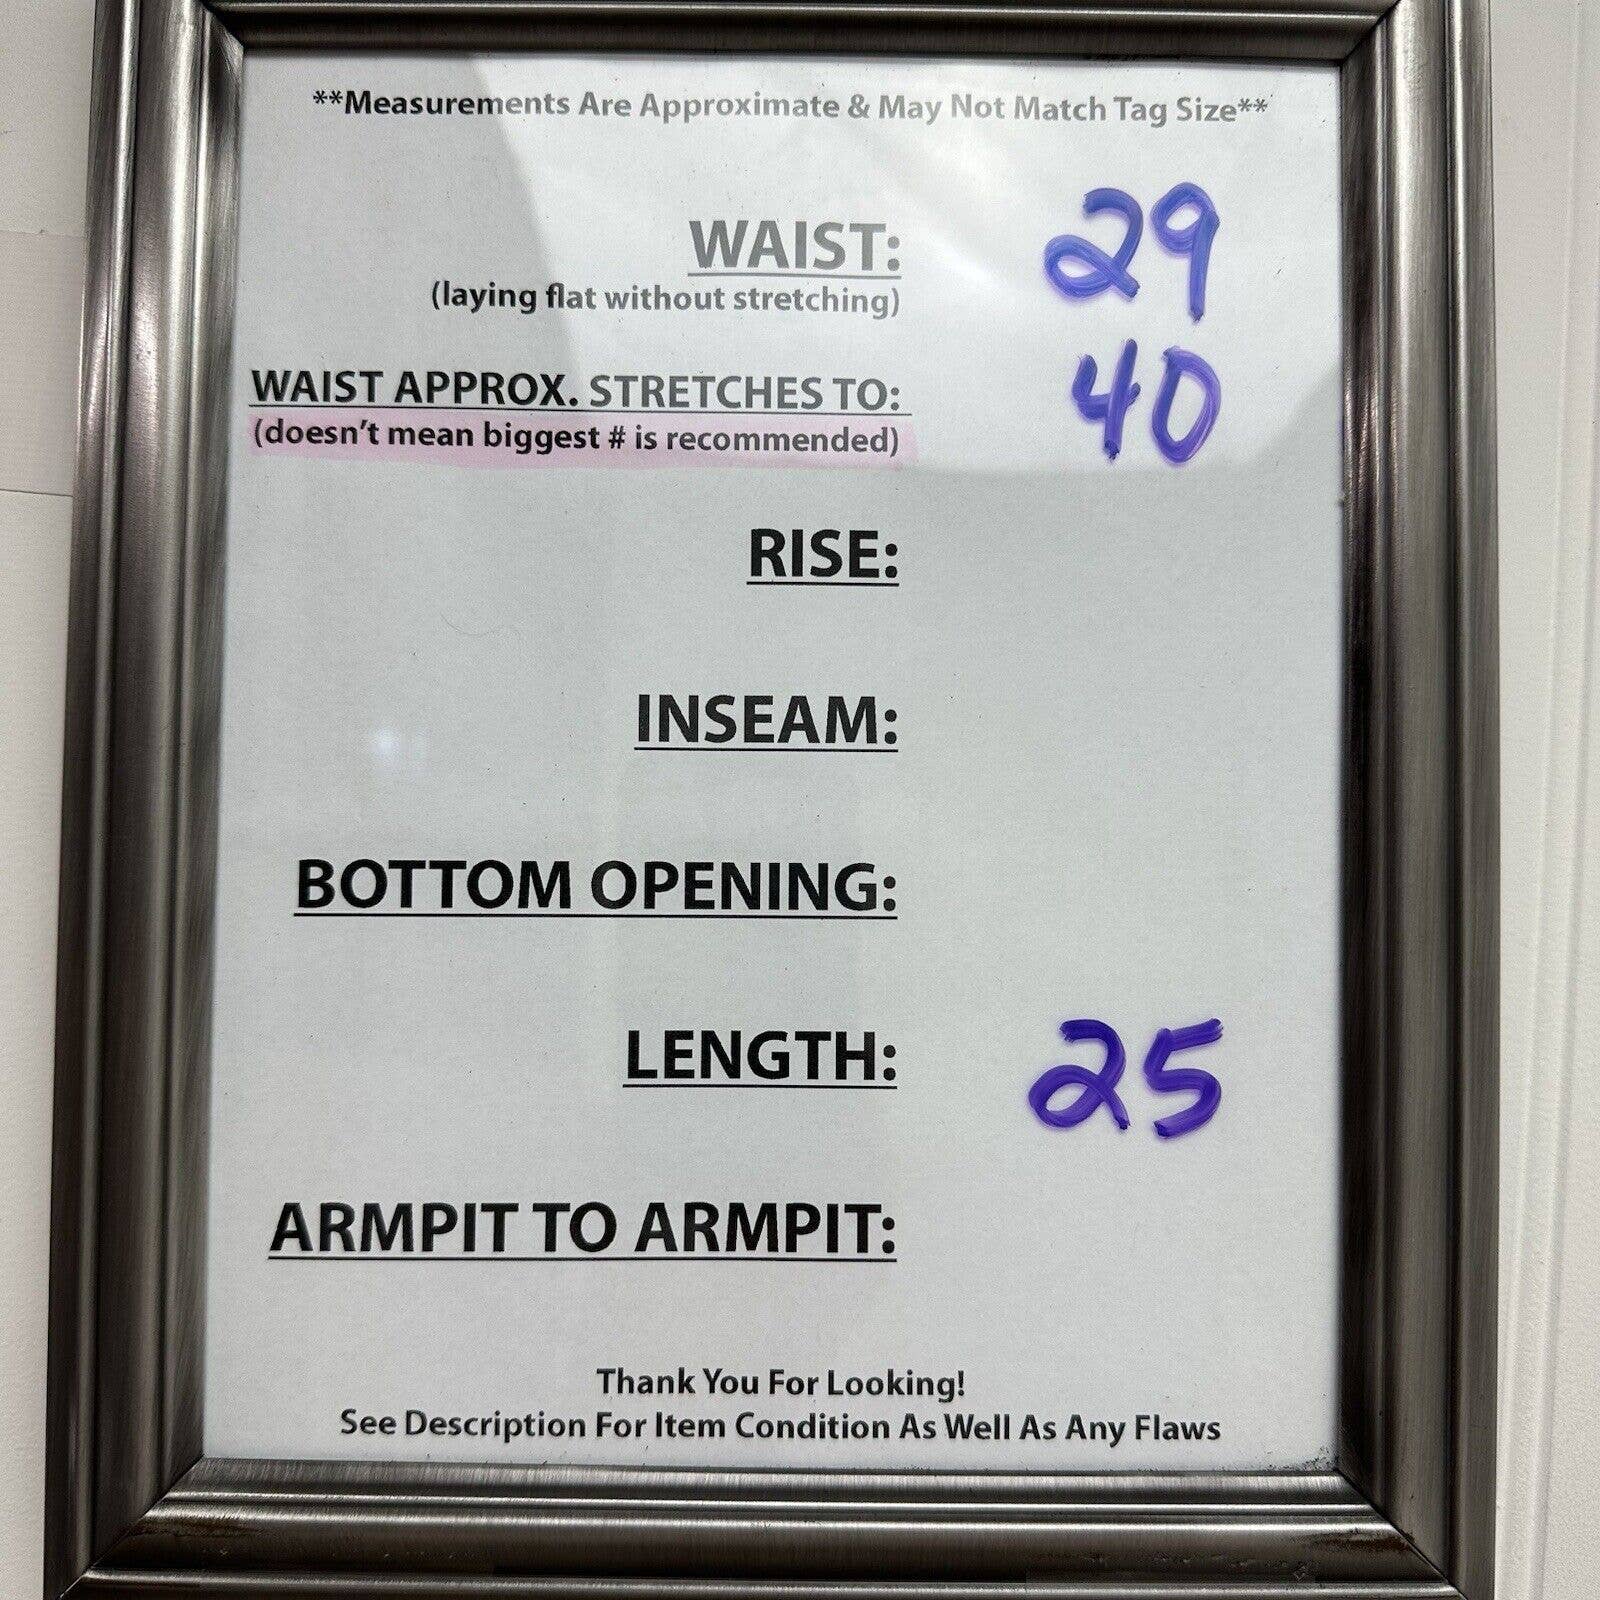 **Measurements Are Approximate & May Not Match Tag Size**
WAIST: 29
(laying flat without stretching)
WAIST APPROX. STRETCHES TO: 40
(doesn't mean biggest # is recommended)
RISE:
INSEAM:
BOTTOM OPENING:
LENGTH: 25
ARMPIT TO ARMPIT:
Thank You For Looking!
See Description For Item Condition As Well As Any Flaws